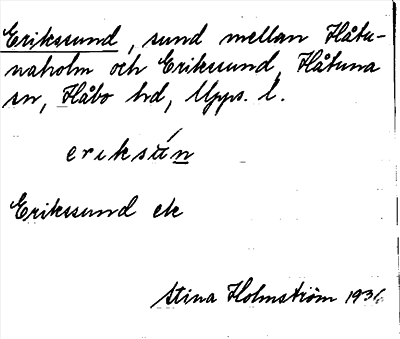 Erikssund, sund mellan Håtu-
naholm och Erikssund, Håtuna
sn, Håbo hd, Upps. l.
eriksún
Erikssund ek
Stina Holmström 193